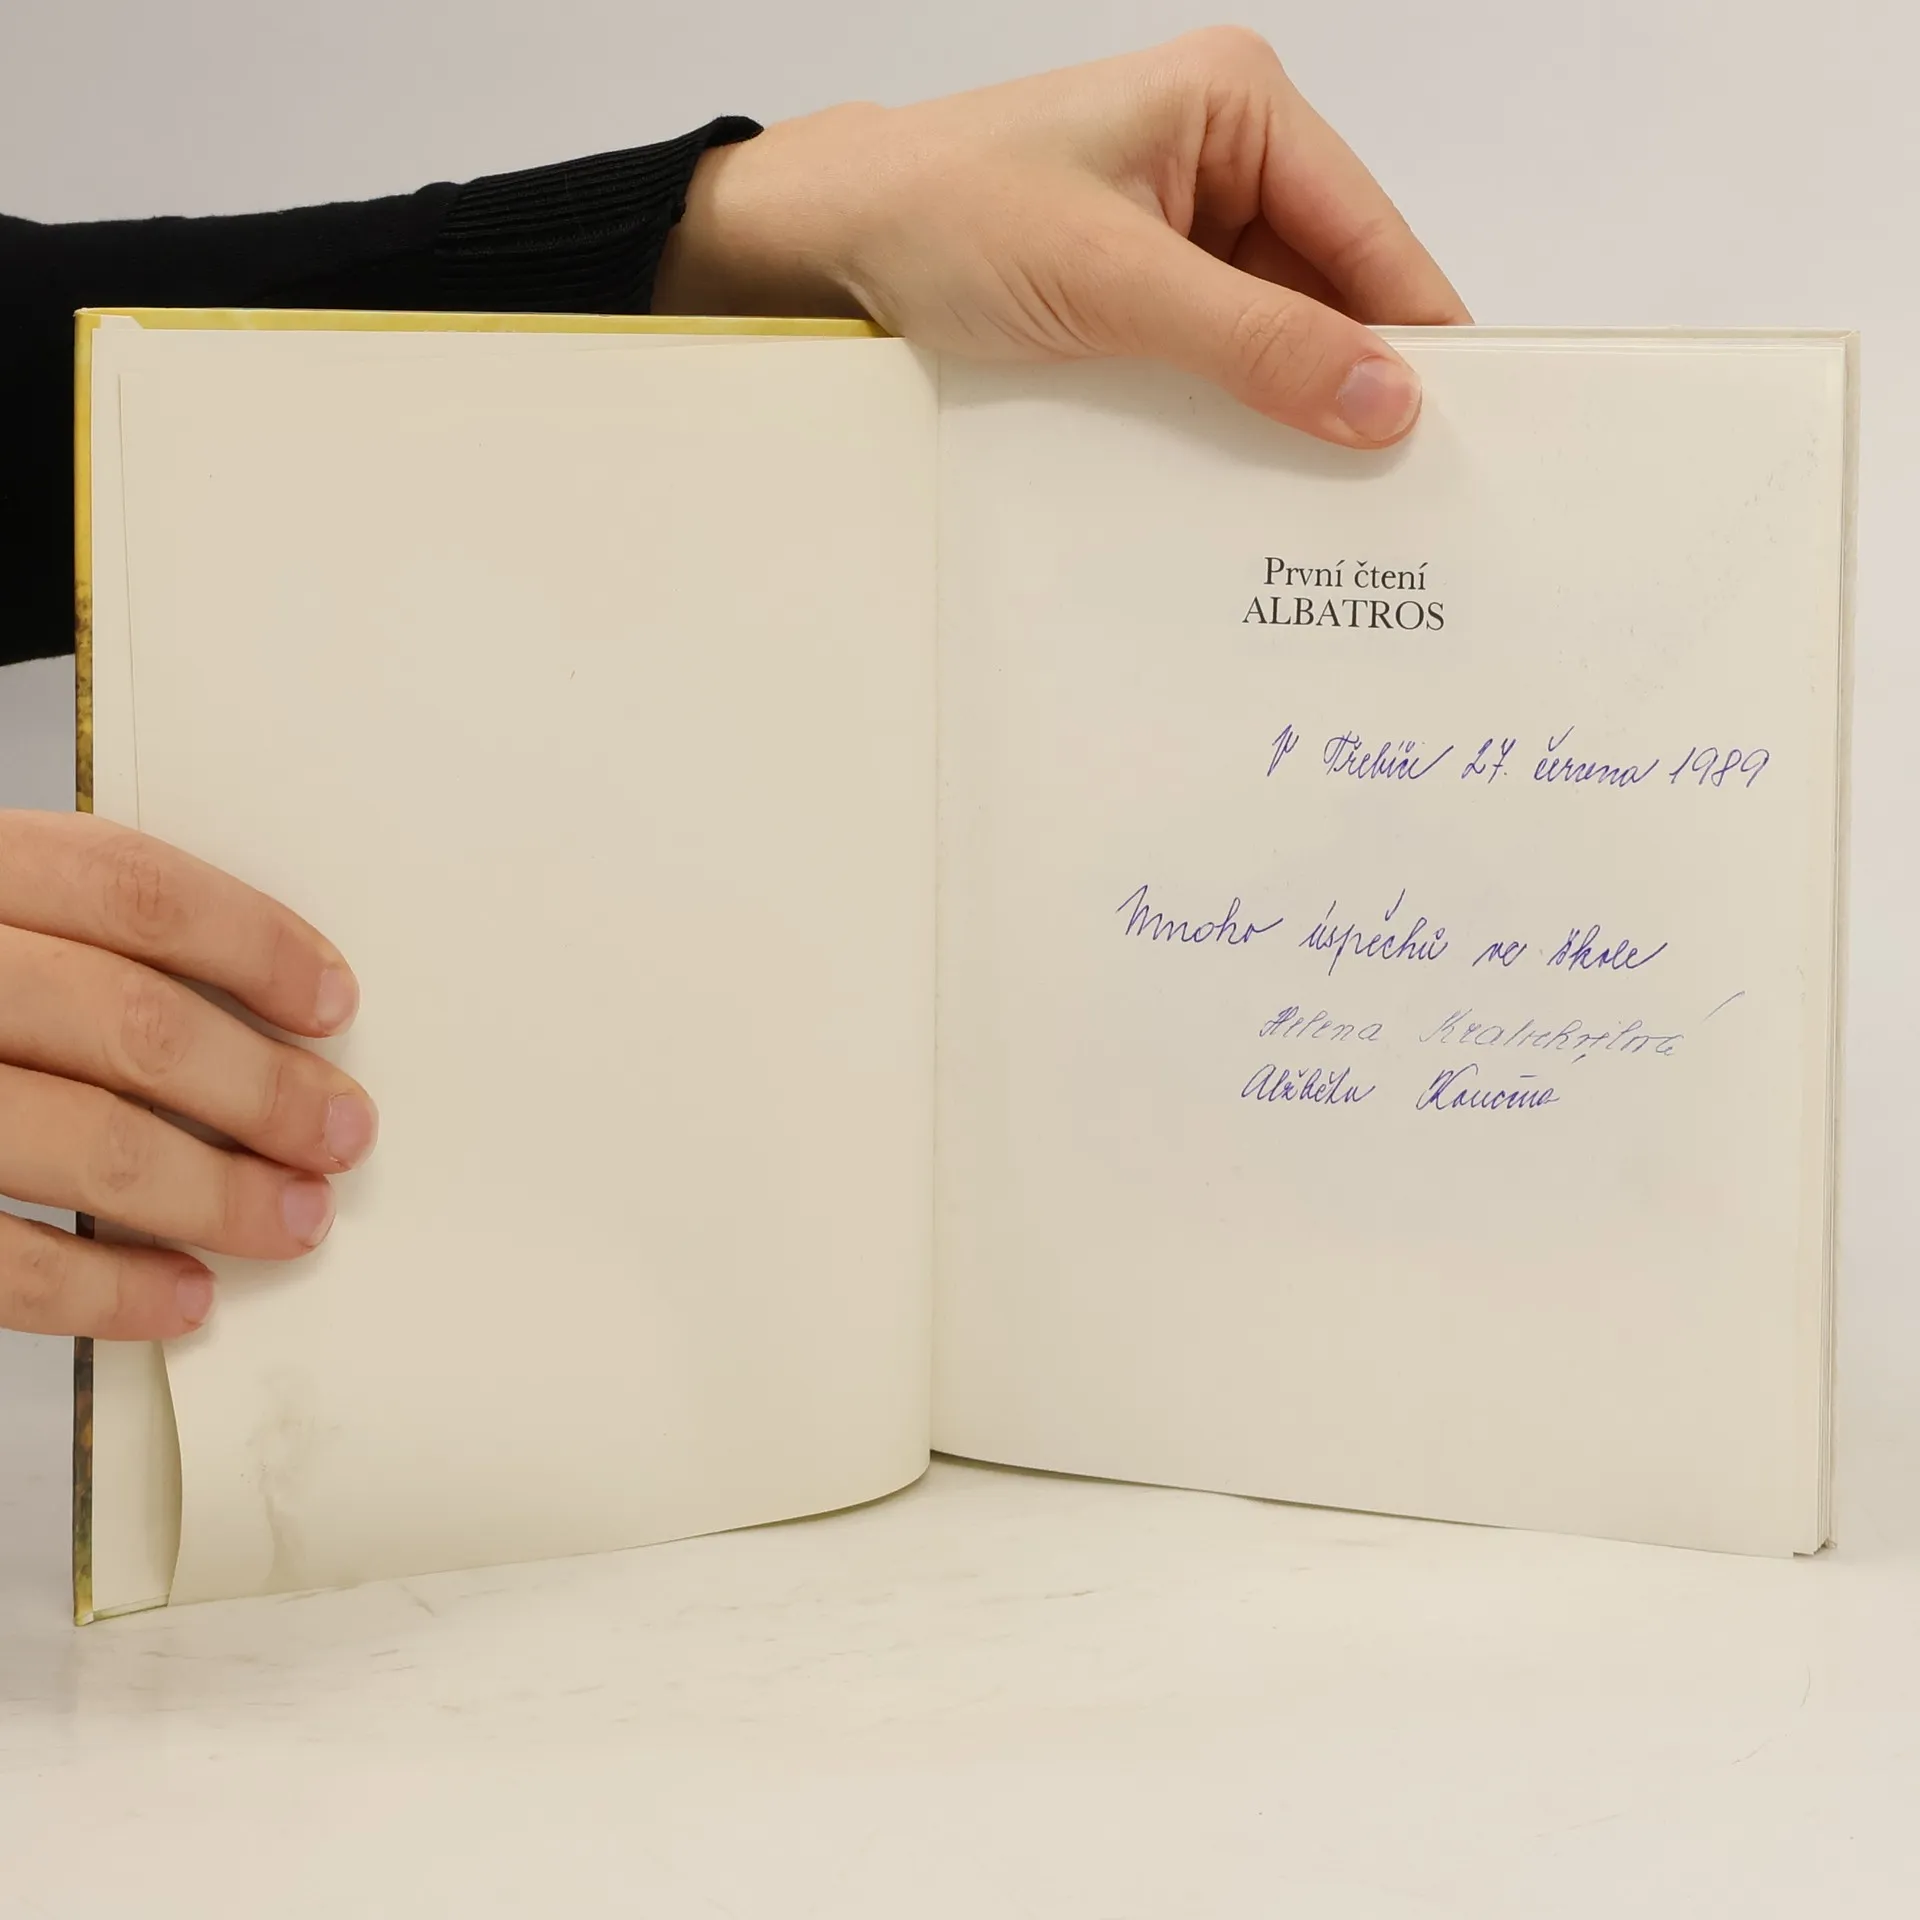 První čtení
ALBATROS
V Třebíči 27. června 1989
Mnoho úspěchů ve škole
Helena Kratochvílová
Alžběta